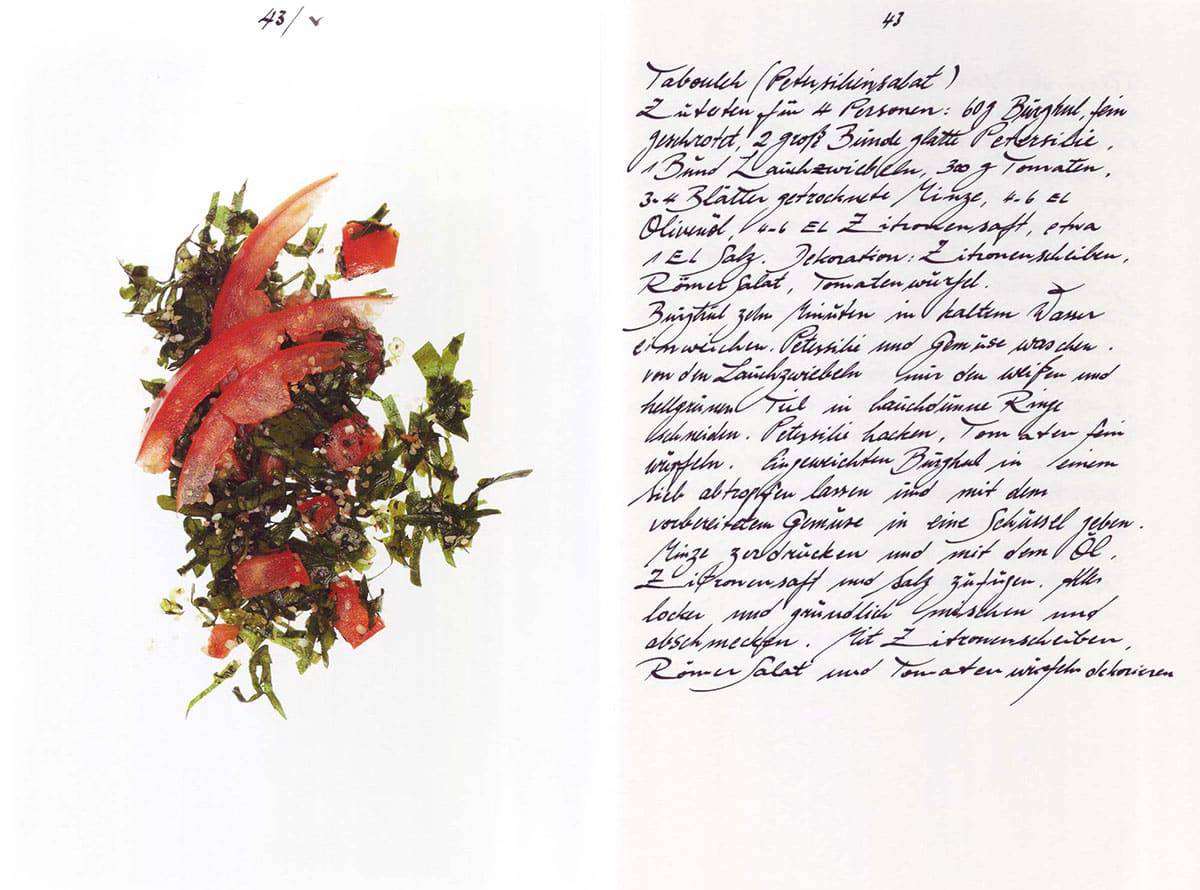 43/v
43
Tabouleh (Petersiliensalat)
Zutaten für 4 Personen: 60g Burghul, fein
geschrotet, 2 große Bunde glatte Petersilie,
1 Bund Lauchzwiebeln, 300 g Tomaten,
3-4 Blätter getrocknete Minze, 4-6 EL
Olivenöl, 4-6 EL Zitronensaft, etwa
1 EL Salz. Dekoration: Zitronenscheiben,
Römersalat, Tomatenwürfel.
Burghul zehn Minuten in kaltem Wasser
einweichen. Petersilie und Gemüse waschen.
von den Lauchzwiebeln nur den weißen und
hellgrünen Teil in hauchdünne Ringe
schneiden. Petersilie hacken, Tomaten fein
würfeln. Eingeweichten Burghul in einem
Sieb abtropfen lassen und mit dem
vorbereitetem Gemüse in eine Schüssel geben.
Minze zerdrücken und mit dem Öl,
Zitronensaft und Salz zufügen. Alles
locker und gründlich mischen und
abschmecken. Mit Zitronenscheiben,
Römersalat und Tomatenwürfeln dekorieren